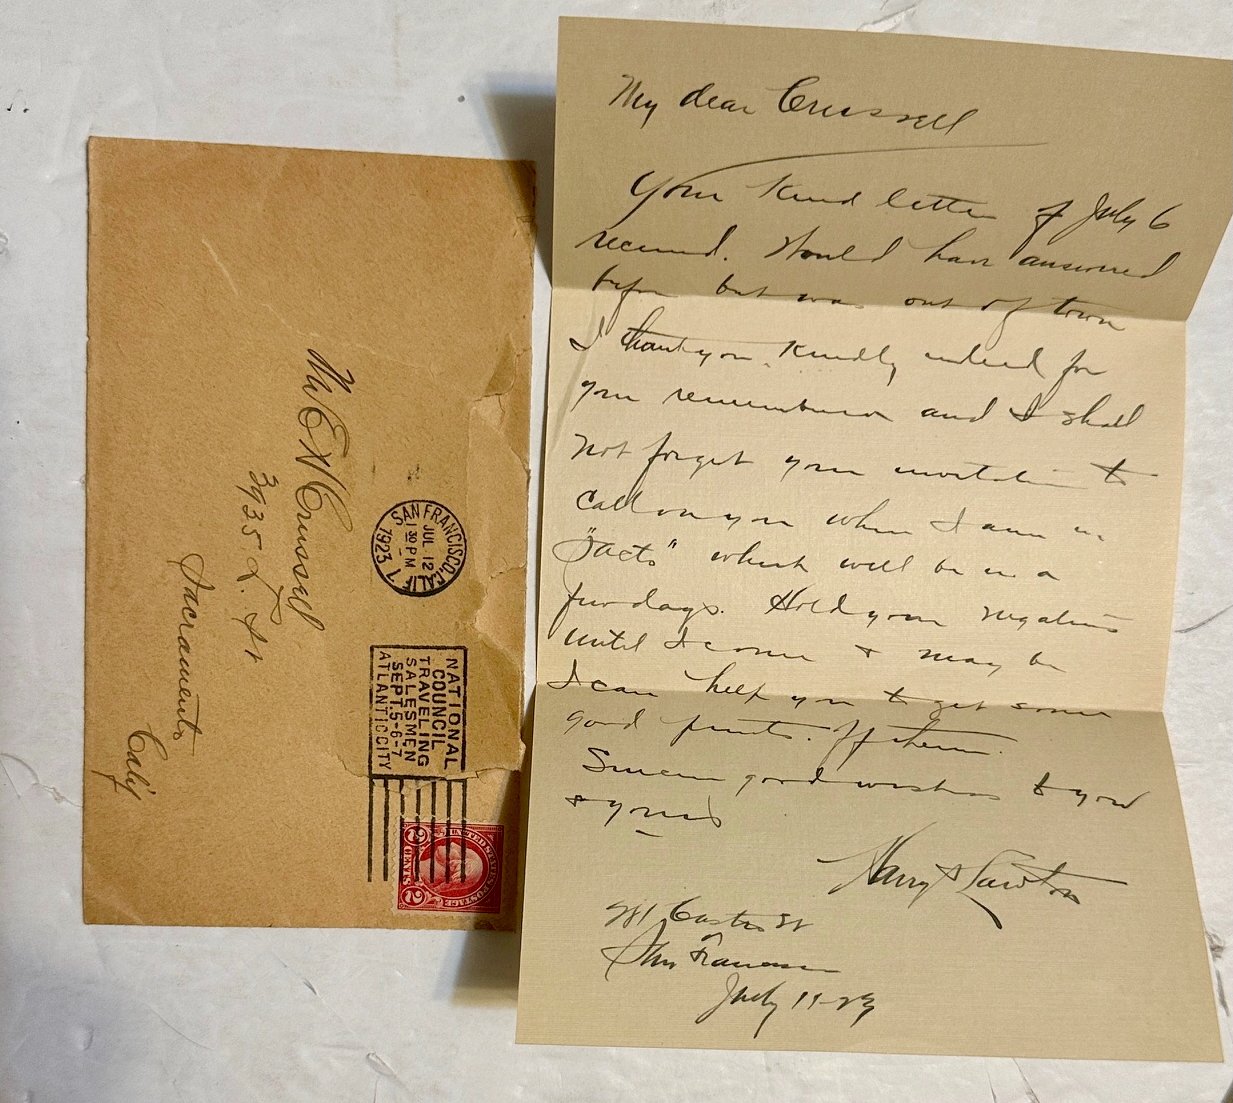 Mr EX Crussell
3935 L. St
Sacramento
Calif
SAN FRANCISCO, CALIF.
JUL 12
1 30 PM
1923
NATIONAL
COUNCIL
TRAVELING
SALESMEN
SEPT. 5-6-7
ATLANTIC CITY
UNITED STATES POSTAGE
2 CENTS 2
My dear Crussell
Your kind letter of July 6
received. Would have answered
before but was out of town
I thank you kindly indeed for
your remembrance and I shall
not forget your invitation to
call on you when I am in
"Sacto" which will be in a
few days. Hold your negatives
until I come & may be
I can help you to get some
good prints off them.
Sincere good wishes to you
& yours
Harry Lawton
Castro St
San Francisco
July 11-23